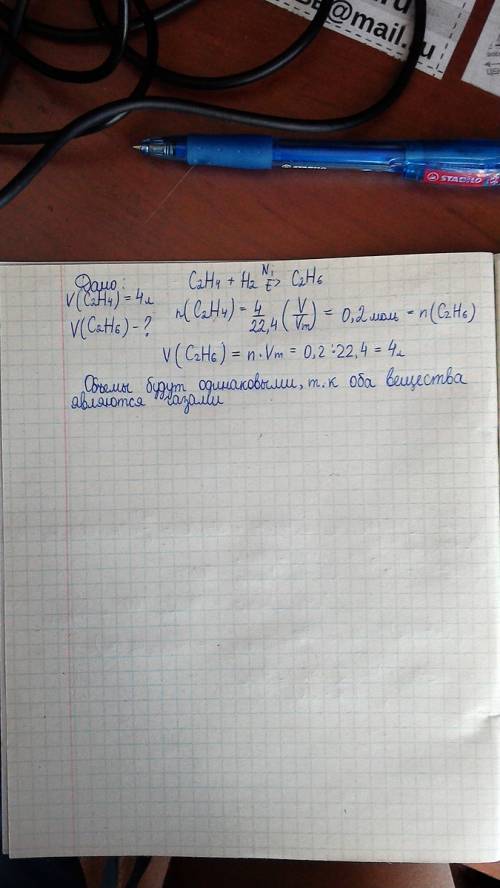 @mail.ru
STABILO
Дано:
V(C2H4) = 4л
V(C2H6) - ?
C2H4 + H2 Ni t> C2H6
n(C2H4) = 4/22,4 (V/Vm) = 0,2 моль = n(C2H6)
V(C2H6) = n · Vm = 0,2 · 22,4 = 4л
Объемы будут одинаковыми, т.к оба вещества
являются газами